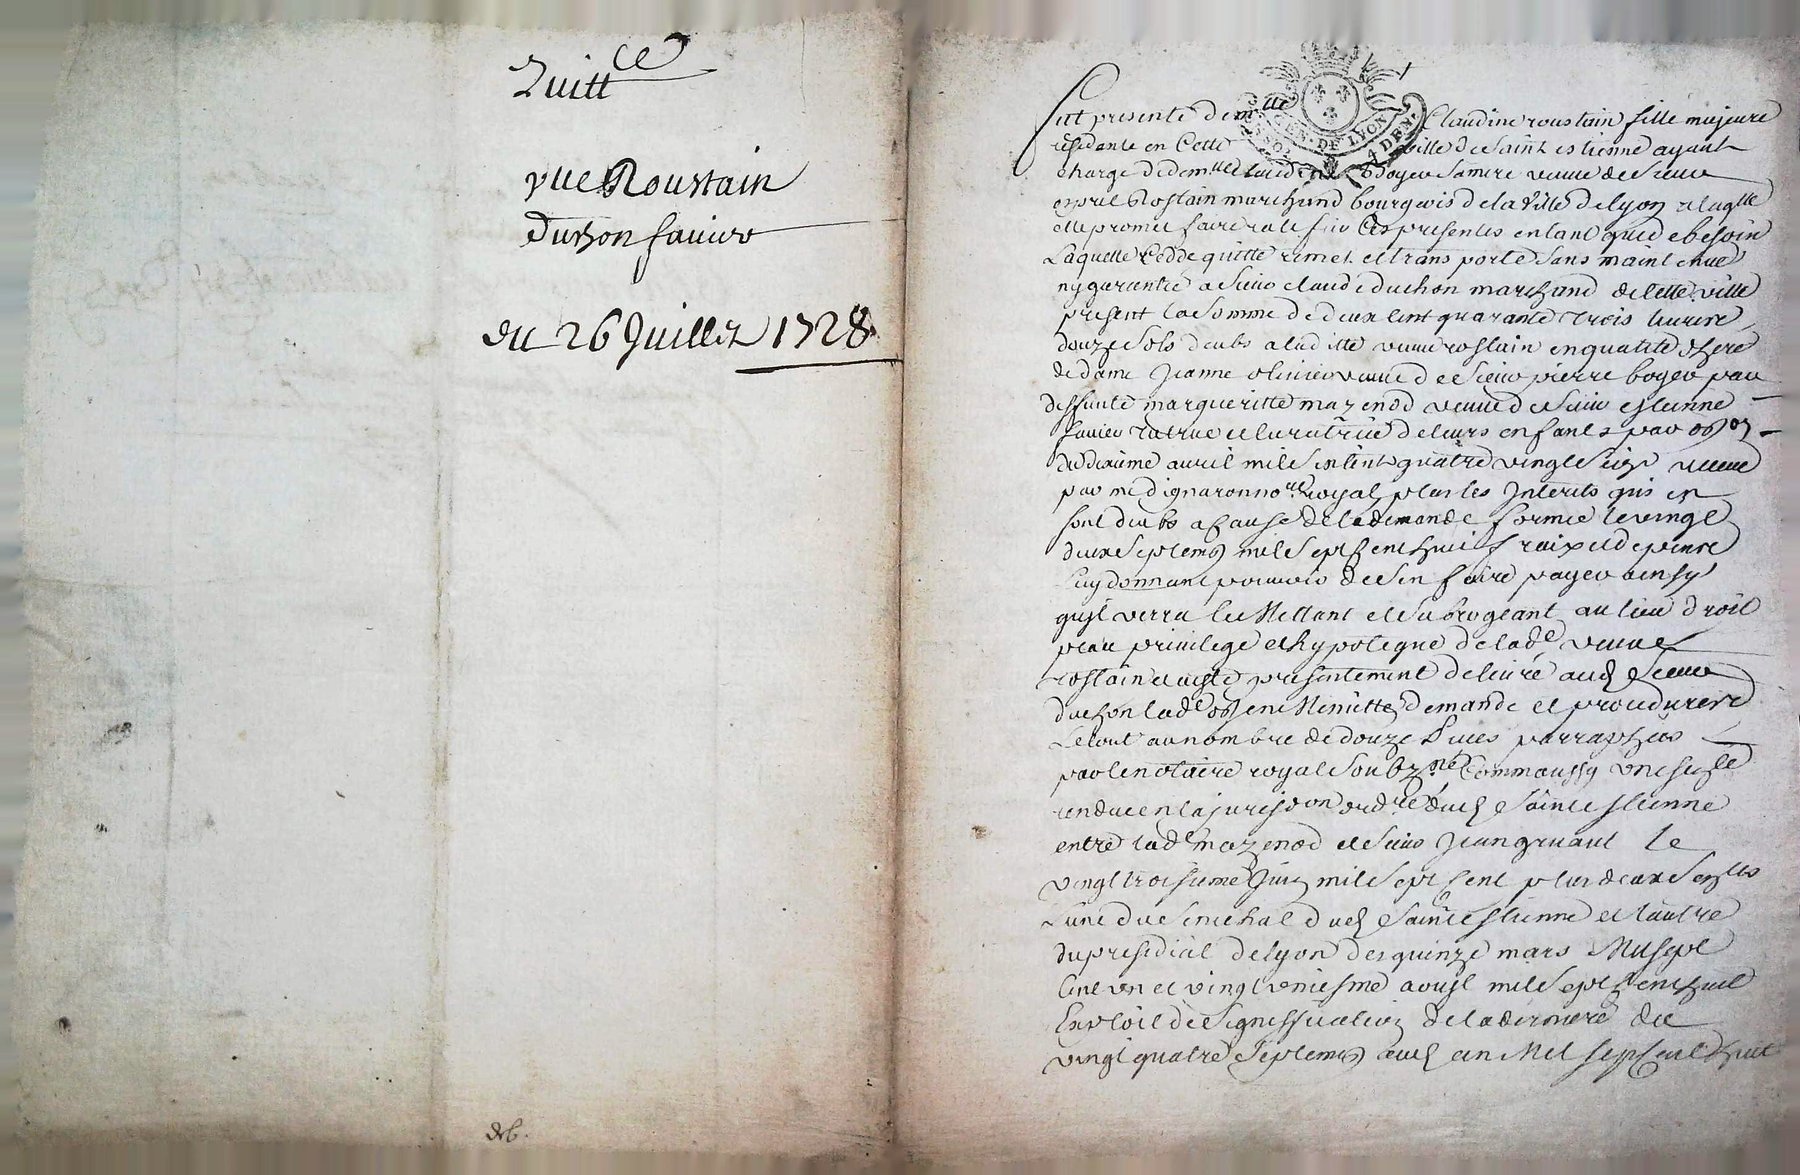 Quitt ce
vve Roustain
Duchon favier
du 26 Juillet 1728.
deb.
GEN. DE LYON
4 DEN.
fut presente dem lle Claudine roustain fille majeure
residante en Cette ville de saint estienne ayant
charge de dem lle Claudine Boyer sa mere veuve de sieur
esprit Rostain marchand bourgeois de la ville de lyon a laq lle
elle promet faire ratifier Ces presentes en tant que de besoin
Laquelle Cedde quitte remet et transporte sans maintenue
ny garentie a sieur claude duchon marchand de Cette ville
present la somme de deux Cent quarante trois livres
douze sols deubs a laditte veuve rostain en qualité d'here
de dame Jeanne olivier veuve de sieur pierre boyer par
deffunte margueritte mazenod veuve de sieur estienne
favier tutrice et curatrice de leurs enfants par ob on
du dixiéme avril mil six cent quatre vingt seize receue
par me dignaron no re royal plus les Interets qui en
sont deubs a Cause de la demande formée le vingt
deux septemb mil sept Cent huit fraix et depens
Luy donnant pouvoir de s'en faire payer ainsy
qu'il verra Le Mettant et subrogeant au lieu droit
place privilege et hypoteque de lad e veuve
rostain et a esté presentement delivré aud sieur
duchon lad e ob en Minutte demande et procedures
Le tout au nombre de douze pieces parraphées
par le notaire royal soubz né Comm' aussy une se ce
rendue en la jurisd on ord re dud saint estienne
entre lad e mazenod et sieur Jean gruaut le
vingt troisiéme Juin mil sept Cent plus deux sen ces
L'une du senechal dud saint estienne et l'autre
du presidial de lyon des quinze mars Mil sept
Cent un et vingt uniesme aoust mil sept Cent huit
Exploit de signiffication de la derniere du
vingt quatre septemb aud an Mil sept Cent huit